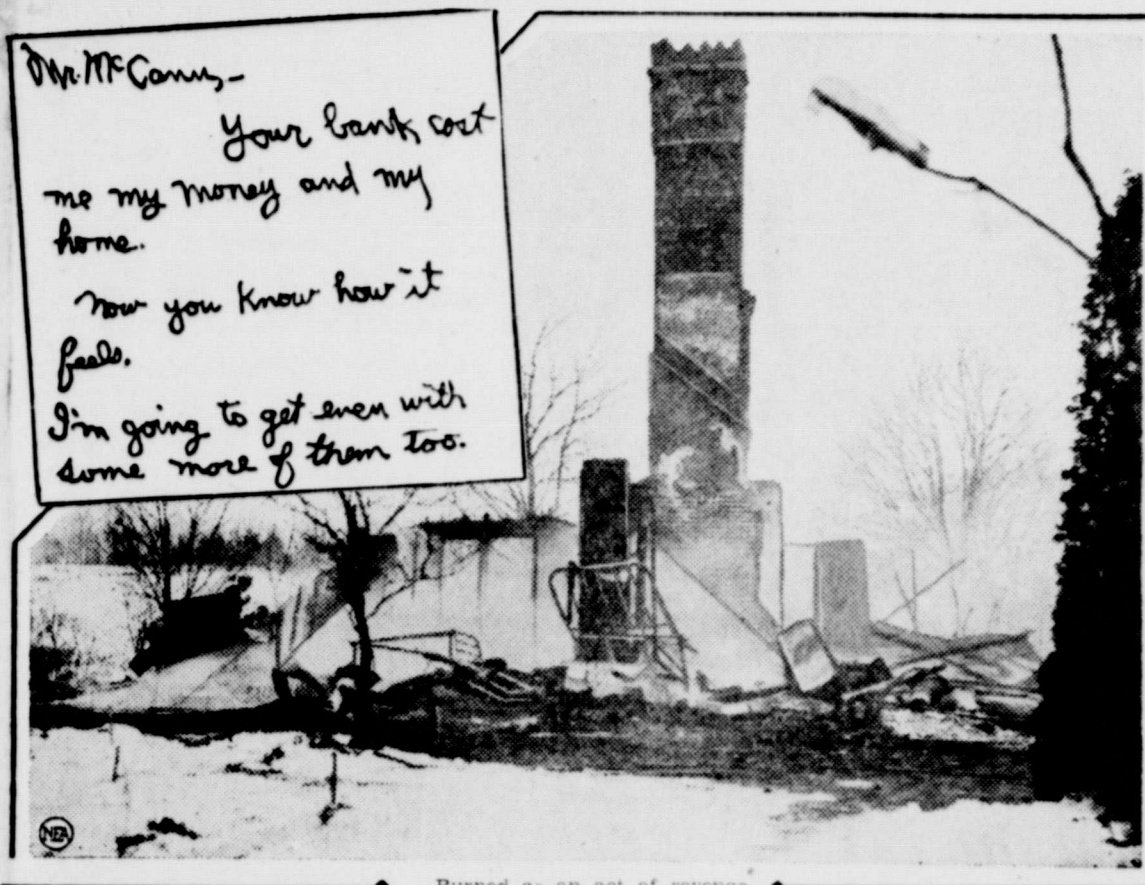 Mr. McCann,-
Your bank cost
me my money and my
home.
Now you know how it
feels.
I'm going to get even with
some more of them too.
NEA
Burned as an act of revenge